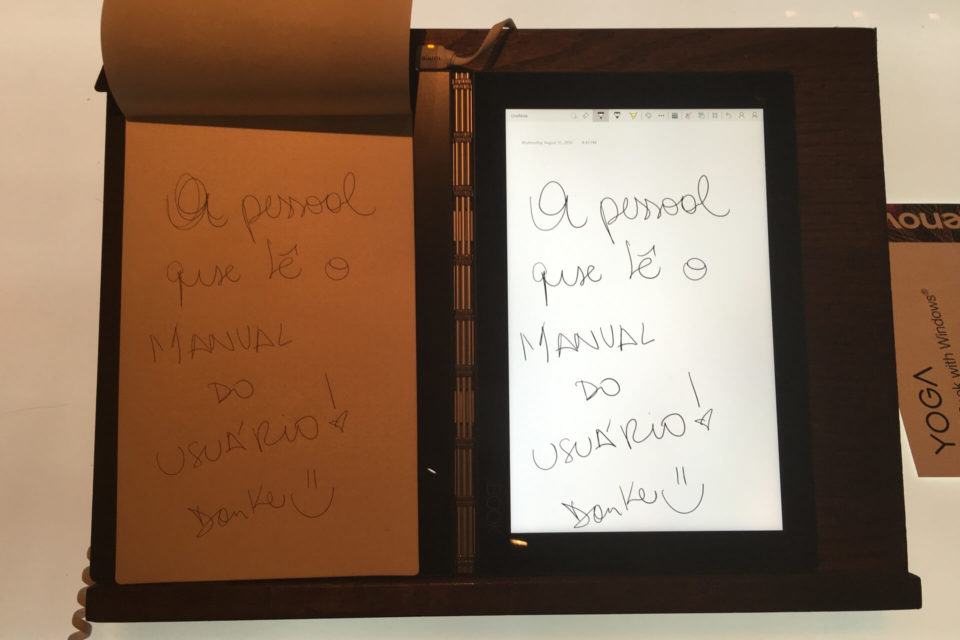 A pessoal
que lê o
MANUAL
DO
USUÁRIO!
Danke
OneNote
Wednesday, August 31, 2016 4:43 PM
A pessoal
que lê o
MANUAL
DO
USUÁRIO!
Danke
enov
YOGA
ook with Windows®